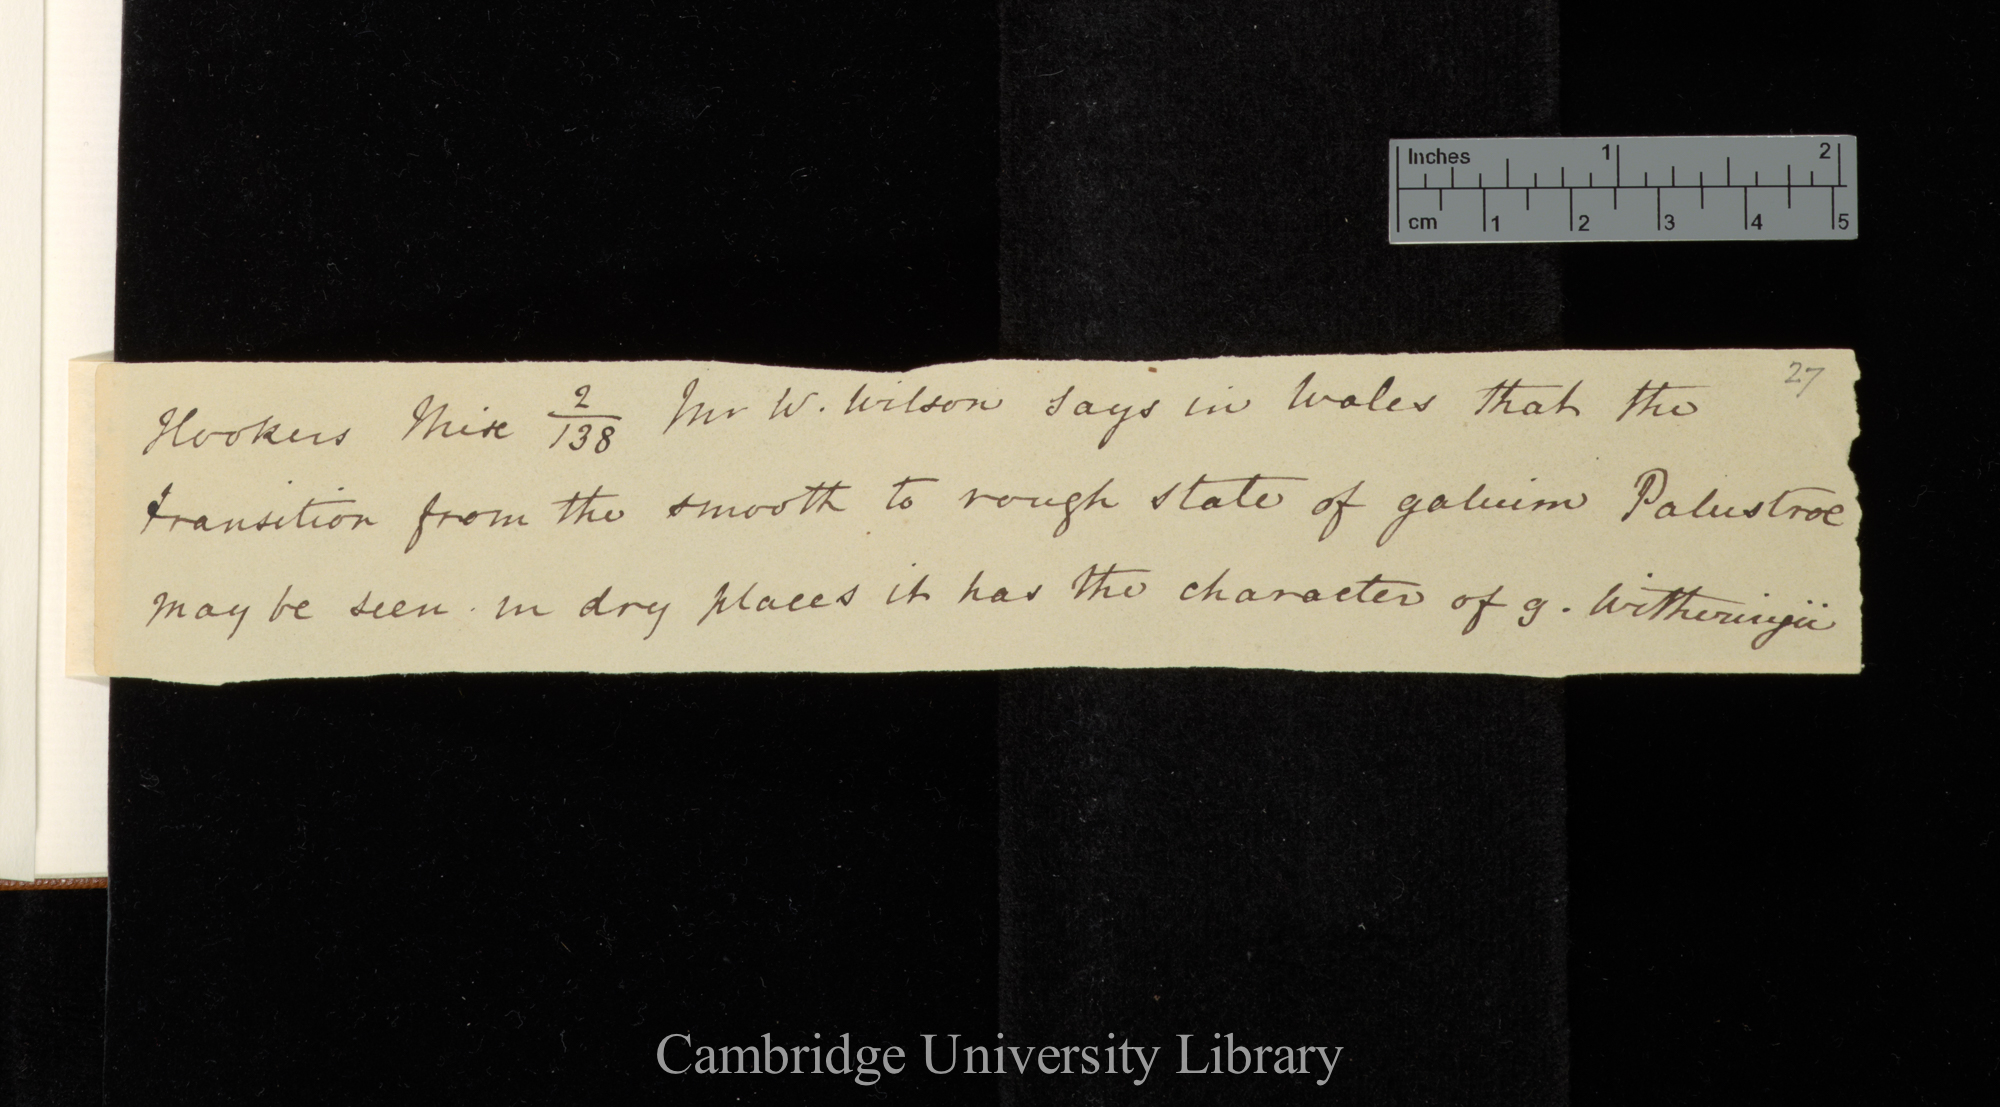 Inches 1 2
cm 1 2 3 4 5
27
Hookers Misc 2/138 Mr W. Wilson says in Wales that the
transition from the smooth to rough state of galuim Palustroe
may be seen. in dry places it has the character of g. Witheringii
Cambridge University Library